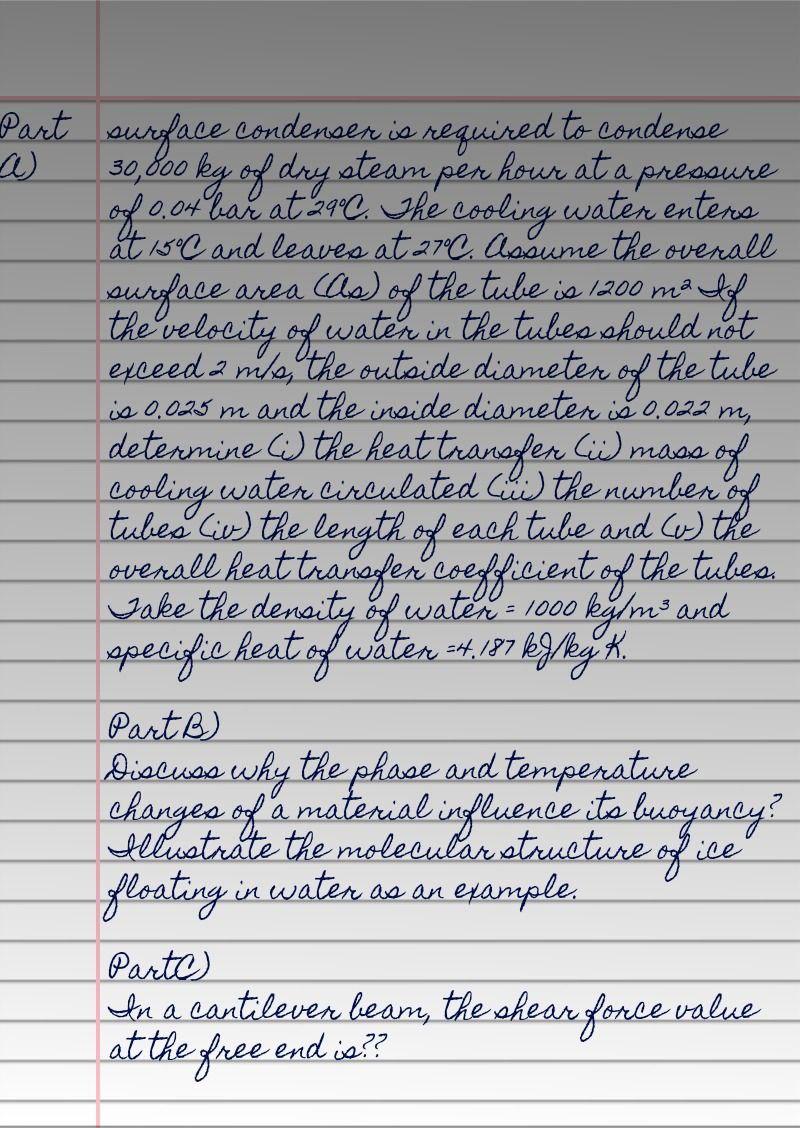 Part surface condenser is required to condense
a) 30,000 kg of dry steam per hour at a pressure
of 0.04 bar at 29°C. The cooling water enters
at 15°C and leaves at 27°C. Assume the overall
surface area (As) of the tube is 1200 m² If
the velocity of water in the tubes should not
exceed 2 m/s, the outside diameter of the tube
is 0.025 m and the inside diameter is 0.022 m,
determine (i) the heat transfer (ii) mass of
cooling water circulated (iii) the number of
tubes (iv) the length of each tube and (v) the
overall heat transfer coefficient of the tubes.
Take the density of water = 1000 kg/m³ and
specific heat of water =4.187 kJ/kg K.
Part B)
Discuss why the phase and temperature
changes of a material influence its buoyancy?
Illustrate the molecular structure of ice
floating in water as an example.
PartC)
In a cantilever beam, the shear force value
at the free end is??